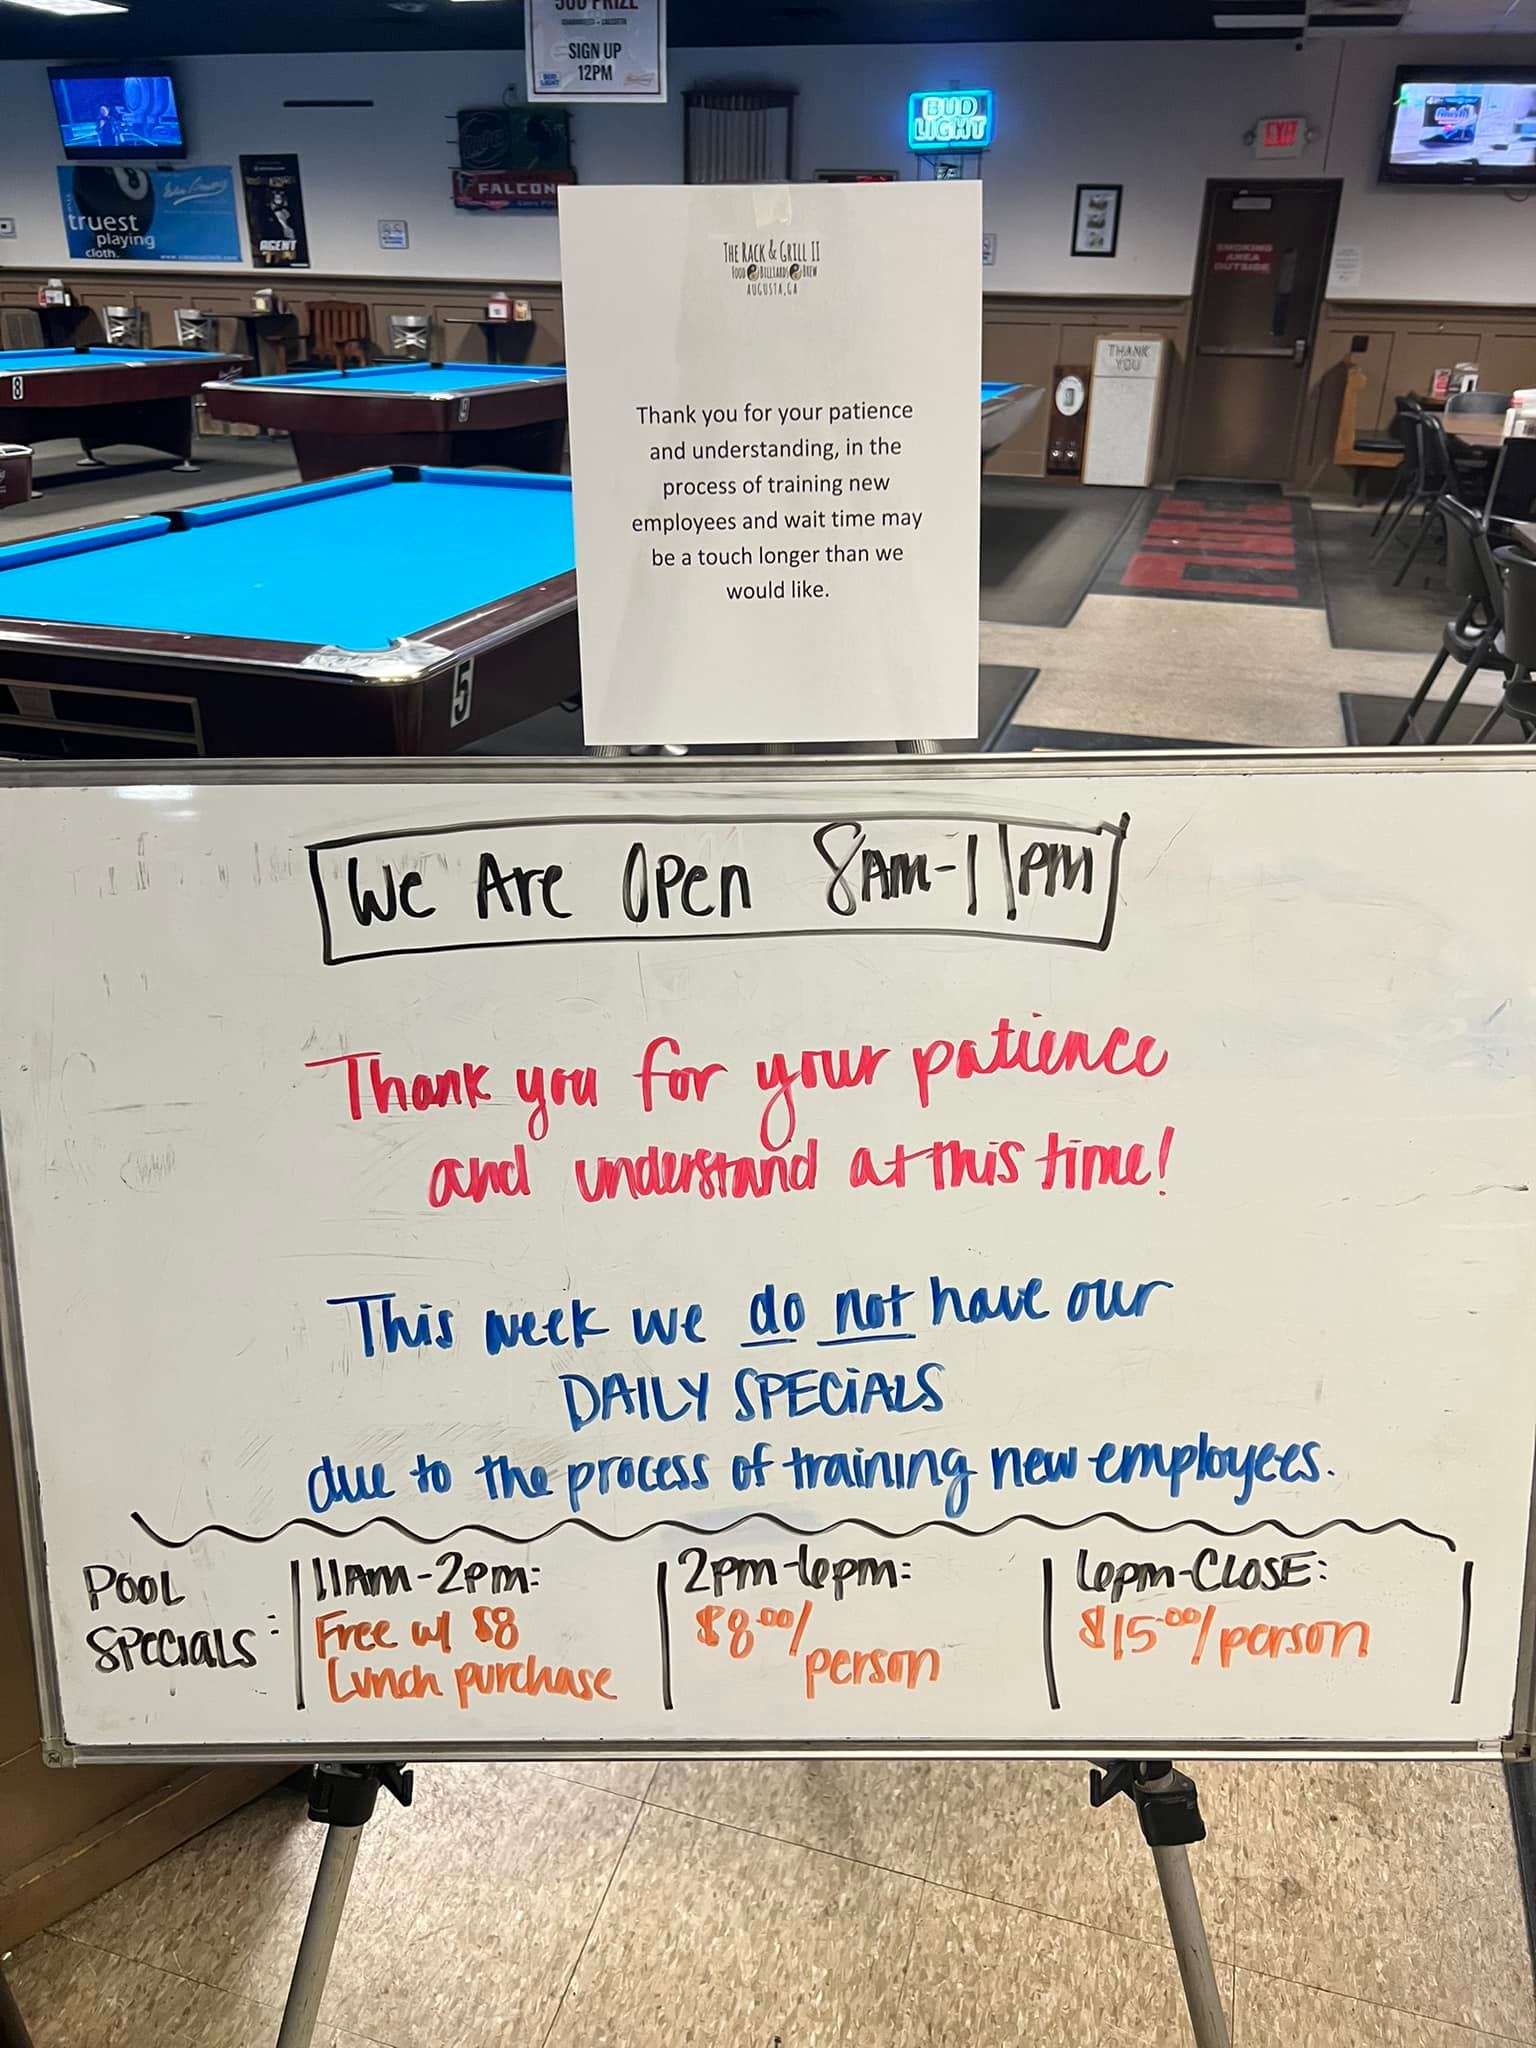 500 PRIZE
SIGN UP
12PM
BUD
LIGHT
BUD
LIGHT
EXIT
FALCON
truest
playing
cloth.
AGENT
SMOKING
AREA
OUTSIDE
THANK
YOU
8
9
5
THE RACK & GRILL II
FOOD BILLIARDS BREW
AUGUSTA, GA
Thank you for your patience
and understanding, in the
process of training new
employees and wait time may
be a touch longer than we
would like.
We Are Open 8AM-11PM
Thank you for your patience
and understand at this time!
This week we do not have our
DAILY SPECiALS
due to the process of training new employees.
POOL
SPECIALS:
11AM-2PM:
Free w/ $8
Lunch purchase
2pm-6pm:
$8.00/
person
6pm-CLOSE:
$15.00/person